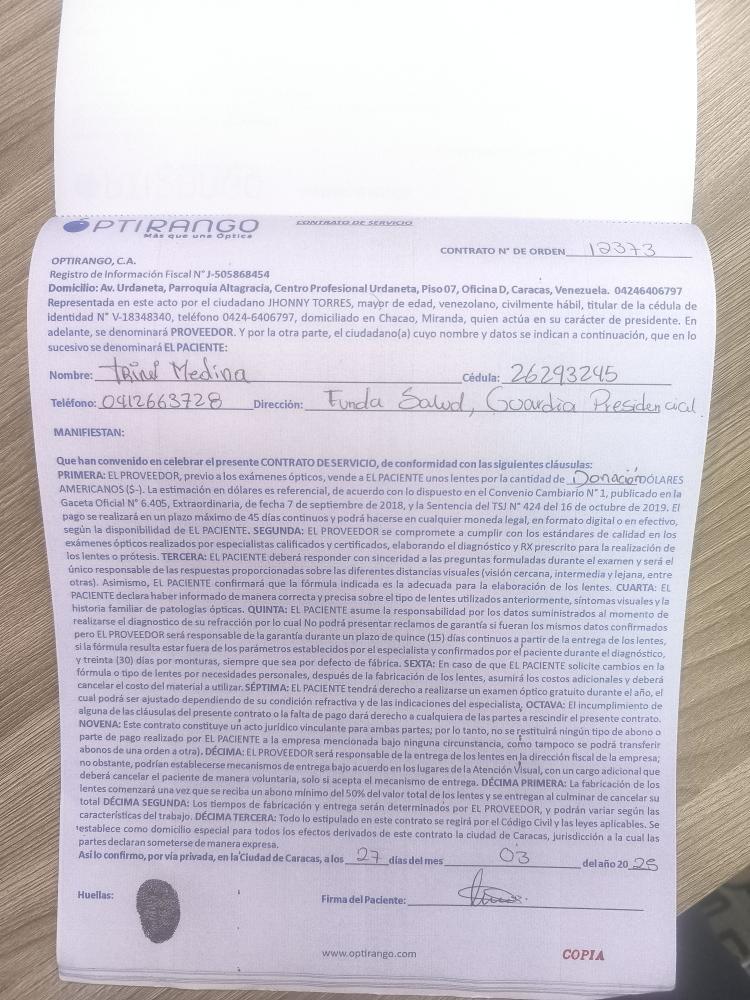 OPTIRANGO
Más que una Óptica
CONTRATO DE SERVICIO
CONTRATO N° DE ORDEN 12373
OPTIRANGO, C.A.
Registro de Información Fiscal N° J-505868454
Domicilio: Av. Urdaneta, Parroquia Altagracia, Centro Profesional Urdaneta, Piso 07, Oficina D, Caracas, Venezuela. 04246406797
Representada en este acto por el ciudadano JHONNY TORRES, mayor de edad, venezolano, civilmente hábil, titular de la cédula de
identidad N° V-18348340, teléfono 0424-6406797, domiciliado en Chacao, Miranda, quien actúa en su carácter de presidente. En
adelante, se denominará PROVEEDOR. Y por la otra parte, el ciudadano(a) cuyo nombre y datos se indican a continuación, que en lo
sucesivo se denominará EL PACIENTE:
Nombre: Trini Medina Cédula: 26293245
Teléfono: 0412663728 Dirección: Funda Salud, Guardia Presidencial
MANIFIESTAN:
Que han convenido en celebrar el presente CONTRATO DE SERVICIO, de conformidad con las siguientes cláusulas:
PRIMERA: EL PROVEEDOR, previo a los exámenes ópticos, vende a EL PACIENTE unos lentes por la cantidad de Donación DÓLARES
AMERICANOS ($-). La estimación en dólares es referencial, de acuerdo con lo dispuesto en el Convenio Cambiario N° 1, publicado en la
Gaceta Oficial N° 6.405, Extraordinaria, de fecha 7 de septiembre de 2018, y la Sentencia del TSJ N° 424 del 16 de octubre de 2019. El
pago se realizará en un plazo máximo de 45 días continuos y podrá hacerse en cualquier moneda legal, en formato digital o en efectivo,
según la disponibilidad de EL PACIENTE. SEGUNDA: EL PROVEEDOR se compromete a cumplir con los estándares de calidad en los
exámenes ópticos realizados por especialistas calificados y certificados, elaborando el diagnóstico y RX prescrito para la realización de
los lentes o prótesis. TERCERA: EL PACIENTE deberá responder con sinceridad a las preguntas formuladas durante el examen y será el
único responsable de las respuestas proporcionadas sobre las diferentes distancias visuales (visión cercana, intermedia y lejana, entre
otras). Asimismo, EL PACIENTE confirmará que la fórmula indicada es la adecuada para la elaboración de los lentes. CUARTA: EL
PACIENTE declara haber informado de manera correcta y precisa sobre el tipo de lentes utilizados anteriormente, síntomas visuales y la
historia familiar de patologías ópticas. QUINTA: EL PACIENTE asume la responsabilidad por los datos suministrados al momento de
realizarse el diagnostico de su refracción por lo cual No podrá presentar reclamos de garantía si fueran los mismos datos confirmados
pero EL PROVEEDOR será responsable de la garantía durante un plazo de quince (15) días continuos a partir de la entrega de los lentes,
si la fórmula resulta estar fuera de los parámetros establecidos por el especialista y confirmados por el paciente durante el diagnóstico,
y treinta (30) días por monturas, siempre que sea por defecto de fábrica. SEXTA: En caso de que EL PACIENTE solicite cambios en la
fórmula o tipo de lentes por necesidades personales, después de la fabricación de los lentes, asumirá los costos adicionales y deberá
cancelar el costo del material a utilizar. SÉPTIMA: EL PACIENTE tendrá derecho a realizarse un examen óptico gratuito durante el año, el
cual podrá ser ajustado dependiendo de su condición refractiva y de las indicaciones del especialista. OCTAVA: El incumplimiento de
alguna de las cláusulas del presente contrato o la falta de pago dará derecho a cualquiera de las partes a rescindir el presente contrato.
NOVENA: Este contrato constituye un acto jurídico vinculante para ambas partes; por lo tanto, no se restituirá ningún tipo de abono o
parte de pago realizado por EL PACIENTE a la empresa mencionada bajo ninguna circunstancia, como tampoco se podrá transferir
abonos de una orden a otra). DÉCIMA: EL PROVEEDOR será responsable de la entrega de los lentes en la dirección fiscal de la empresa;
no obstante, podrían establecerse mecanismos de entrega bajo acuerdo en los lugares de la Atención Visual, con un cargo adicional que
deberá cancelar el paciente de manera voluntaria, solo si acepta el mecanismo de entrega. DÉCIMA PRIMERA: La fabricación de los
lentes comenzará una vez que se reciba un abono mínimo del 50% del valor total de los lentes y se entregan al culminar de cancelar su
total DÉCIMA SEGUNDA: Los tiempos de fabricación y entrega serán determinados por EL PROVEEDOR, y podrán variar según las
características del trabajo. DÉCIMA TERCERA: Todo lo estipulado en este contrato se regirá por el Código Civil y las leyes aplicables. Se
establece como domicilio especial para todos los efectos derivados de este contrato la ciudad de Caracas, jurisdicción a la cual las
partes declaran someterse de manera expresa.
Así lo confirmo, por vía privada, en la Ciudad de Caracas, a los 27 días del mes 03 del año 2025
Huellas: Firma del Paciente:
www.optirango.com COPIA